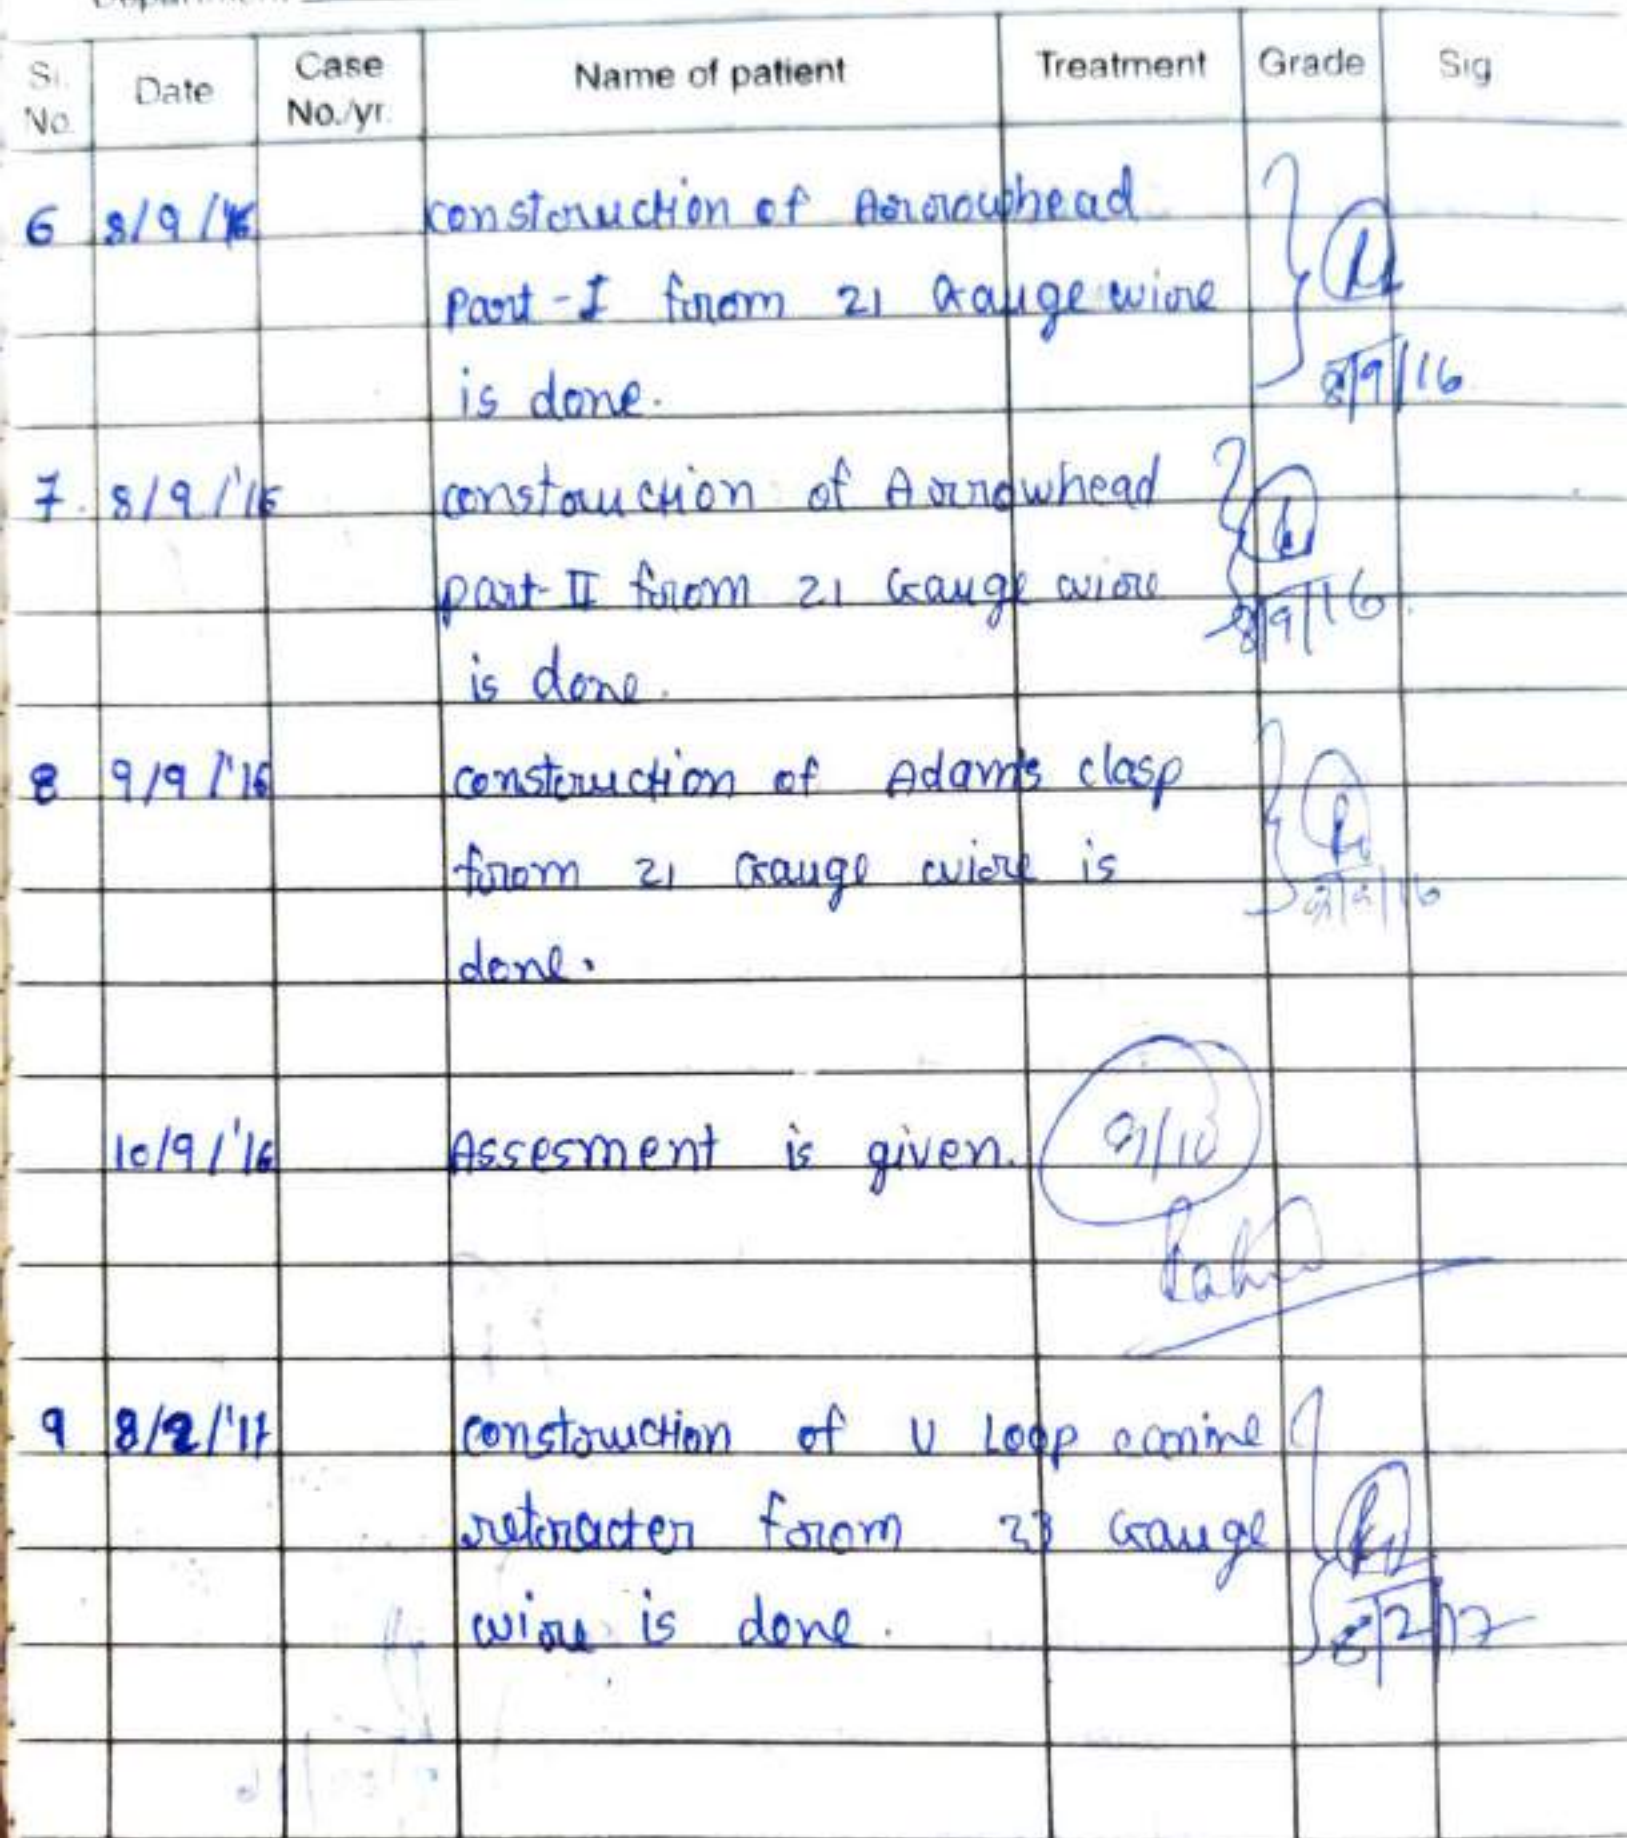 Sl. No. Date Case No./yr. Name of patient Treatment Grade Sig
6 8/9/16 construction of Arrowhead
Part-I from 21 Gauge wire
is done.
8/9/16
7. 8/9/'16 construction of Arrowhead
part-II from 21 Gauge wire
8/9/16
is done.
8 9/9/'16 construction of Adam's clasp
from 21 Gauge wire is
done.
10/9/'16 Assesment is given. 9/10
9 8/2/'17 construction of U Loop canine
retracter from 23 Gauge
wire is done.
8/2/17